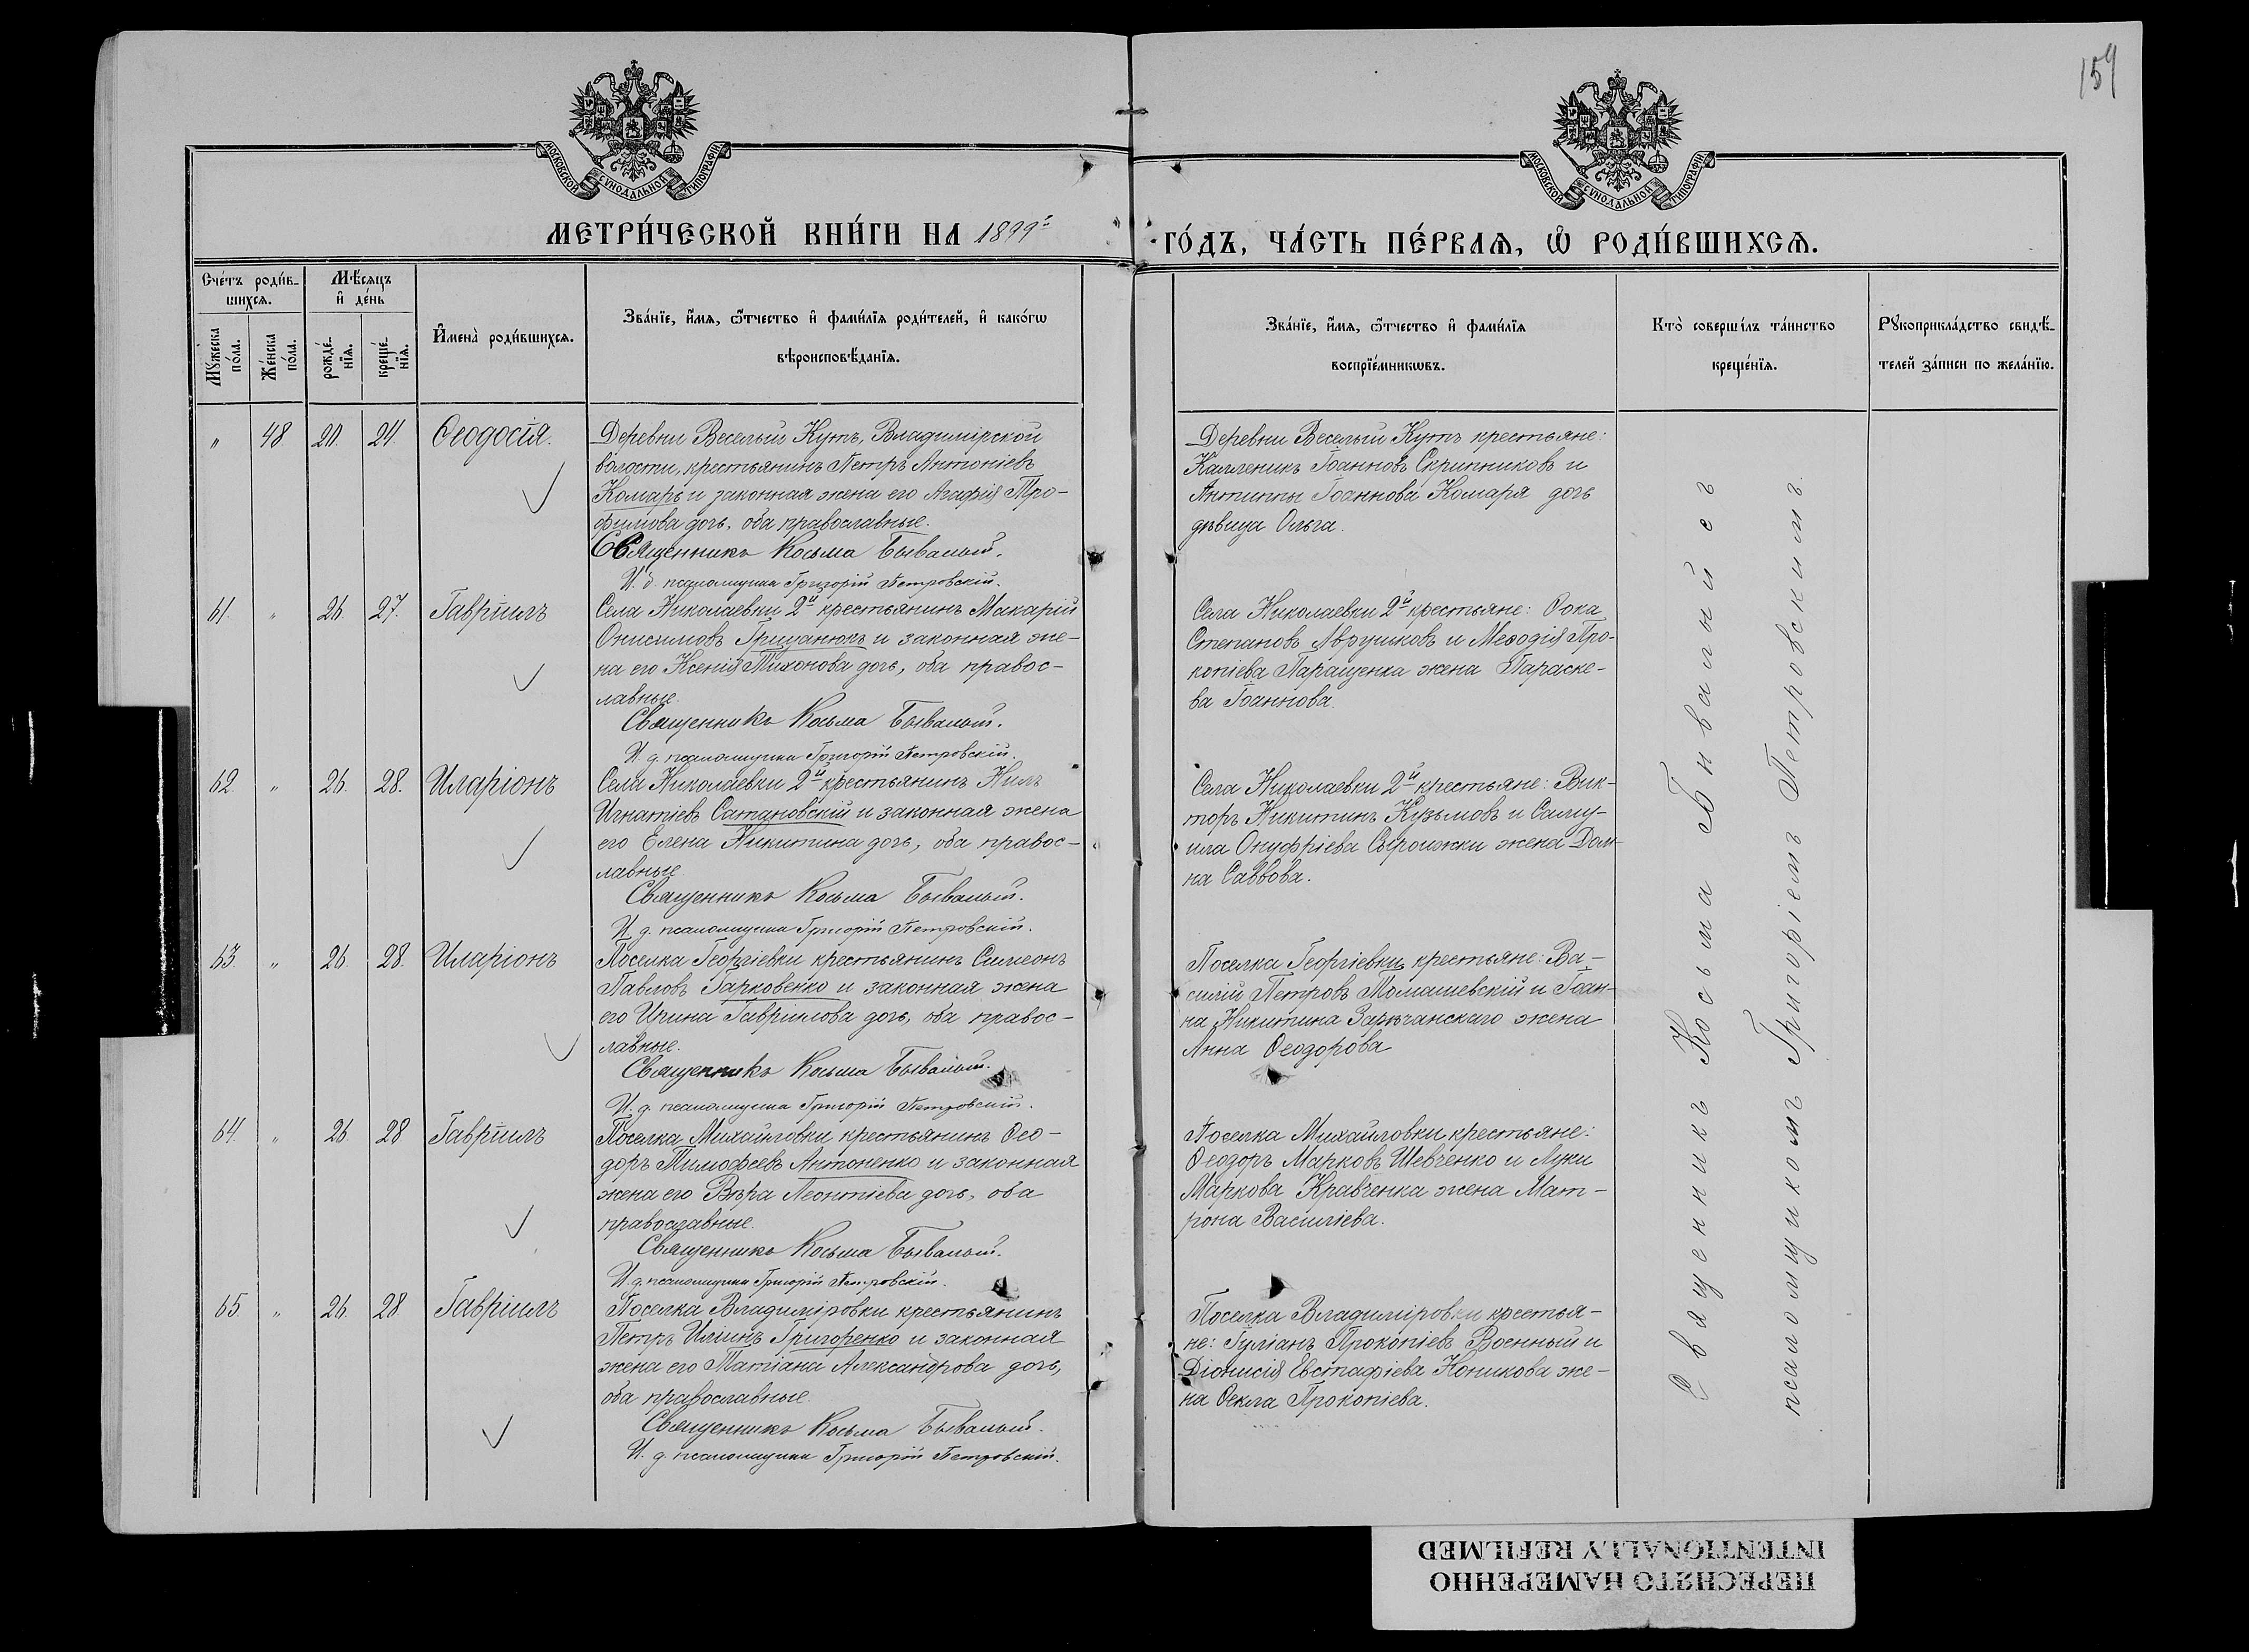 159
МОСКОВСКОЙ СѴНОДАЛЬНОЙ ТИПОГРАФІИ
МОСКОВСКОЙ СѴНОДАЛЬНОЙ ТИПОГРАФІИ
МЕТРИ́ЧЕСКОЙ КНИ́ГИ НА 1899й
ГО́ДЪ, ЧА́СТЬ ПЕ́РВАѦ, Ѡ РОДИ́ВШИХСѦ.
Сче́тъ роди́в-
шихсѧ.
Мꙋ́жеска по́ла.
Же́нска по́ла.
Мѣ́сѧцъ
и҆ де́нь
рожде́-
нїѧ.
креще́-
нїѧ.
И҆мена̀ роди́вшихсѧ.
Зва́нїе, и҆́мѧ, ѻ҆́тчество и҆ фами́лїѧ роди́телей, и҆ како́гѡ
вѣроисповѣ́данїѧ.
Зва́нїе, и҆́мѧ, ѻ҆́тчество и҆ фами́лїѧ
воспрїе́мникѡвъ.
Кто̀ соверши́лъ та́инство
креще́нїѧ.
Рꙋкоприкла́дство свидѣ́-
телей за́писи по жела́нїю.
" 48 20. 21. Ѳеодосія.
Деревни Веселый Кутъ, Владимірской
волости, крестьянинъ Петръ Антоніевъ
Комаръ и законная жена его Агафія Тро-
фимова дочь, оба православные.
Священникъ Косьма Бывалый.
И. д. псаломщика Григорій Петровскій.
Деревни Веселый Кутъ крестьяне:
Каллиникъ Іоанновъ Скрипниковъ и
Антипы Іоаннова Комаря дочь
дѣвица Ольга.
61. " 26. 27. Гавріилъ
Села Николаевки 2й крестьянинъ Макарій
Онисимовъ Грицанюкъ и законная же-
на его Ксенія Тихонова дочь, оба правос-
лавные.
Священникъ Косьма Бывалый.
И. д. псаломщика Григорій Петровскій.
Села Николаевки 2й крестьяне: Ѳока
Степановъ Аврушковъ и Меѳодія Про-
копіева Паращенка жена Параске-
ва Іоаннова.
62. " 26. 28. Иларіонъ
Села Николаевки 2й крестьянинъ Нилъ
Игнатіевъ Сатановскій и законная жена
его Елена Никитина дочь, оба правос-
лавные
Священникъ Косьма Бывалый.
И. д. псаломщика Григорій Петровскій.
Села Николаевки 2й крестьяне: Вик-
торъ Никитинъ Кузьмовъ и Саму-
ила Онуфріева Сыроижки жена Дом-
на Саввова.
63. " 26. 28. Иларіонъ
Поселка Георгіевки крестьянинъ Симеонъ
Павловъ Гарковенко и законная жена
его Ирина Гавріилова дочь, оба правос-
лавные.
Священникъ Косьма Бывалый.
И. д. псаломщика Григорій Петровскій.
Поселка Георгіевки крестьяне: Ва-
силій Петровъ Томашевскій и Іоан-
на Никитина Зарѣчанскаго жена
Анна Ѳеодорова
64. " 26. 28 Гавріилъ
Поселка Михайловки крестьянинъ Ѳео-
доръ Тимофеевъ Антоненко и законная
жена его Вѣра Леонтіева дочь, оба
православные.
Священникъ Косьма Бывалый.
И. д. псаломщика Григорій Петровскій.
Поселка Михайловки крестьяне:
Ѳеодоръ Марковъ Шевченко и Луки
Маркова Кравченка жена Мат-
рона Василіева.
65. " 26. 28. Гавріилъ
Поселка Владиміровки крестьянинъ
Петръ Иліинъ Григоренко и законная
жена его Татіана Александрова дочь,
оба православные.
Священникъ Косьма Бывалый.
И. д. псаломщика Григорій Петровскій.
Поселка Владиміровки крестья-
не: Іуліанъ Прокопіевъ Военный и
Діонисія Евстафіева Коникова же-
на Ѳекла Прокопіева.
Священникъ Косьма Бывалый съ
псаломщикомъ Григоріемъ Петровскимъ.
ПЕРЕСНЯТО НАМЕРЕННО
INTENTIONALLY REFILMED